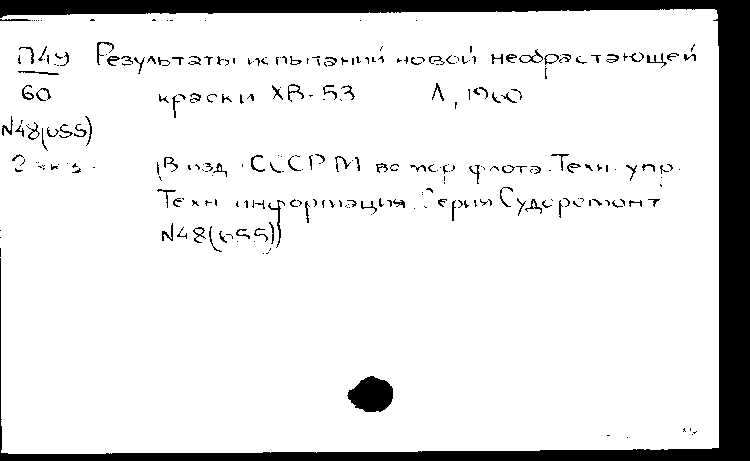 П49 Результаты испытаний новой необрастающей
60 краски ХВ-53 Л, 1960
N48(655)
2 экз. (В изд. СССР М во мор флота. Техн. упр.
Техн информация. Серия Судоремонт
N48(655))